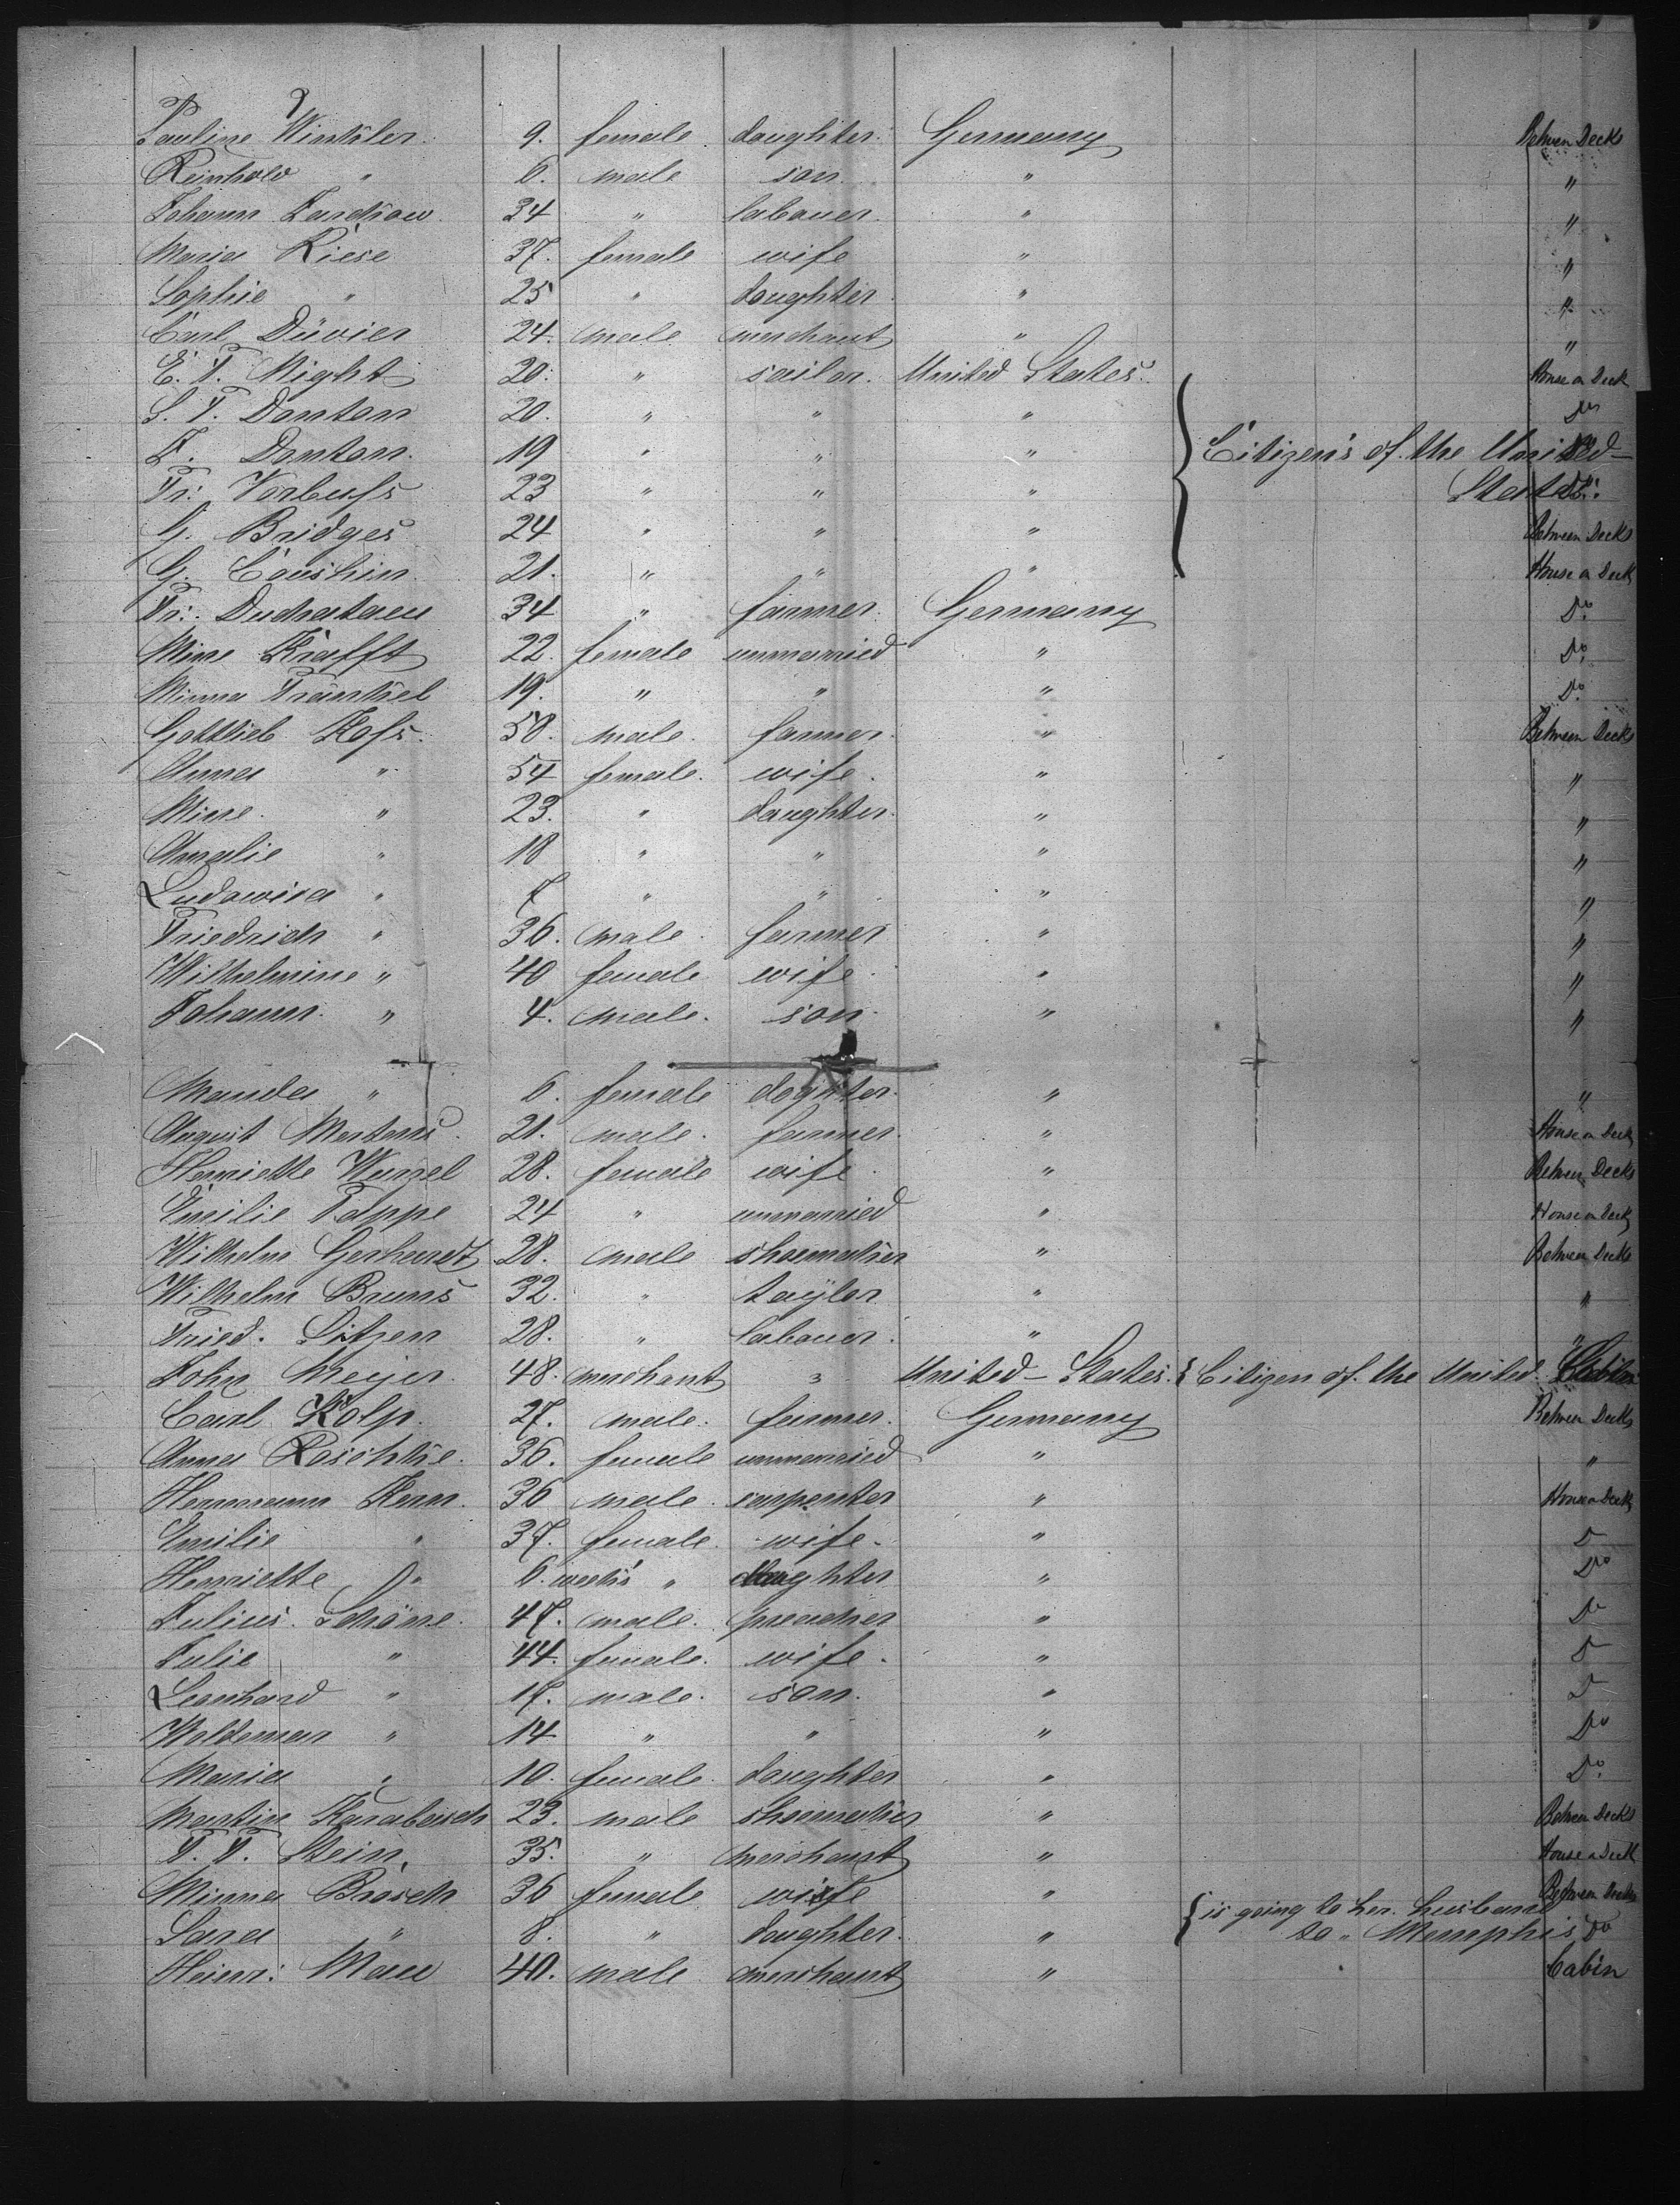 Pauline Winkler. 9. female daughter. Germany Between Decks
Reinhold " 6. male son. " "
Johann Jarchow. 34 " labauer. " "
Maria Riese 37. female wife " "
Sophie " 25 " doughter " "
Carl Düvier 24. male merchant " "
E. T. Might 20. " sailor. United States. House on Deck
S. T. Danton 20. " " " Do
F. Danton. 19 " " " { Citizen's of the United-
Fr: Vorbuss 23 " " " States. Do.
G. Bridges 24 " " " Between Decks
G. Caushin. 21. " " " House on Deck
Fr: Duchatau 34 " farmer. Germany Do.
Mine Krafft 22. female unmarried " Do.
Minna Fränkel 19. " " " Do.
Gottlieb Koss. 58. male. farmer. " Between Decks
Anna " 54 female. wife. " "
Mine. " 23. " daughter. " "
Amalie " 18 " " " "
Ludowina " 7 " " " "
Friedrich " 36. male. farmer " "
Wilhelmine " 40 female wife. " "
Johann. " 4. male. son. " "
Manda " 6. female doghter. " "
August Mertens. 21. male. farmer. " House on Deck
Henriette Wenzel 28. female wife. " Between Decks
Emilie Poppe 24 " unmarried " House on Deck
Wilhelm Gerhardt 28. male shoemaker " Between Decks
Wilhelm Bruns 32. " taylor " "
Fried. Ditzen 28. " labauer. " "
John Meyer. 48. merchant " United-States. { Citizen of the United Cabin
Carl Kolp. 27. male. farmer. Germany Between Decks
Anna Roschke. 36. female unmarried " "
Hermann Kern. 36 male. carpenter " House on Deck
Emilie " 37. female. wife. " D
Henriette " 6. weeks " daughter " Do
Julius. Schöne. 47. male. preacher " Do
Julie " 44. female. wife. " D
Leonhard " 17. male. son. " D
Woldemar " 14 " " " Do
Maria " 10. female. daughter " Do.
Martin Karabasch 23. male shoemaker " Between Decks
F. F. Stein. 35. " merchant " House on Deck
Minna Brasch 36 female wife " Between Decks
{ is going to her. husband
Sara " 8. " daughter. " to " Memphis, Do
Heinr: Mau 40. male merchant " Cabin